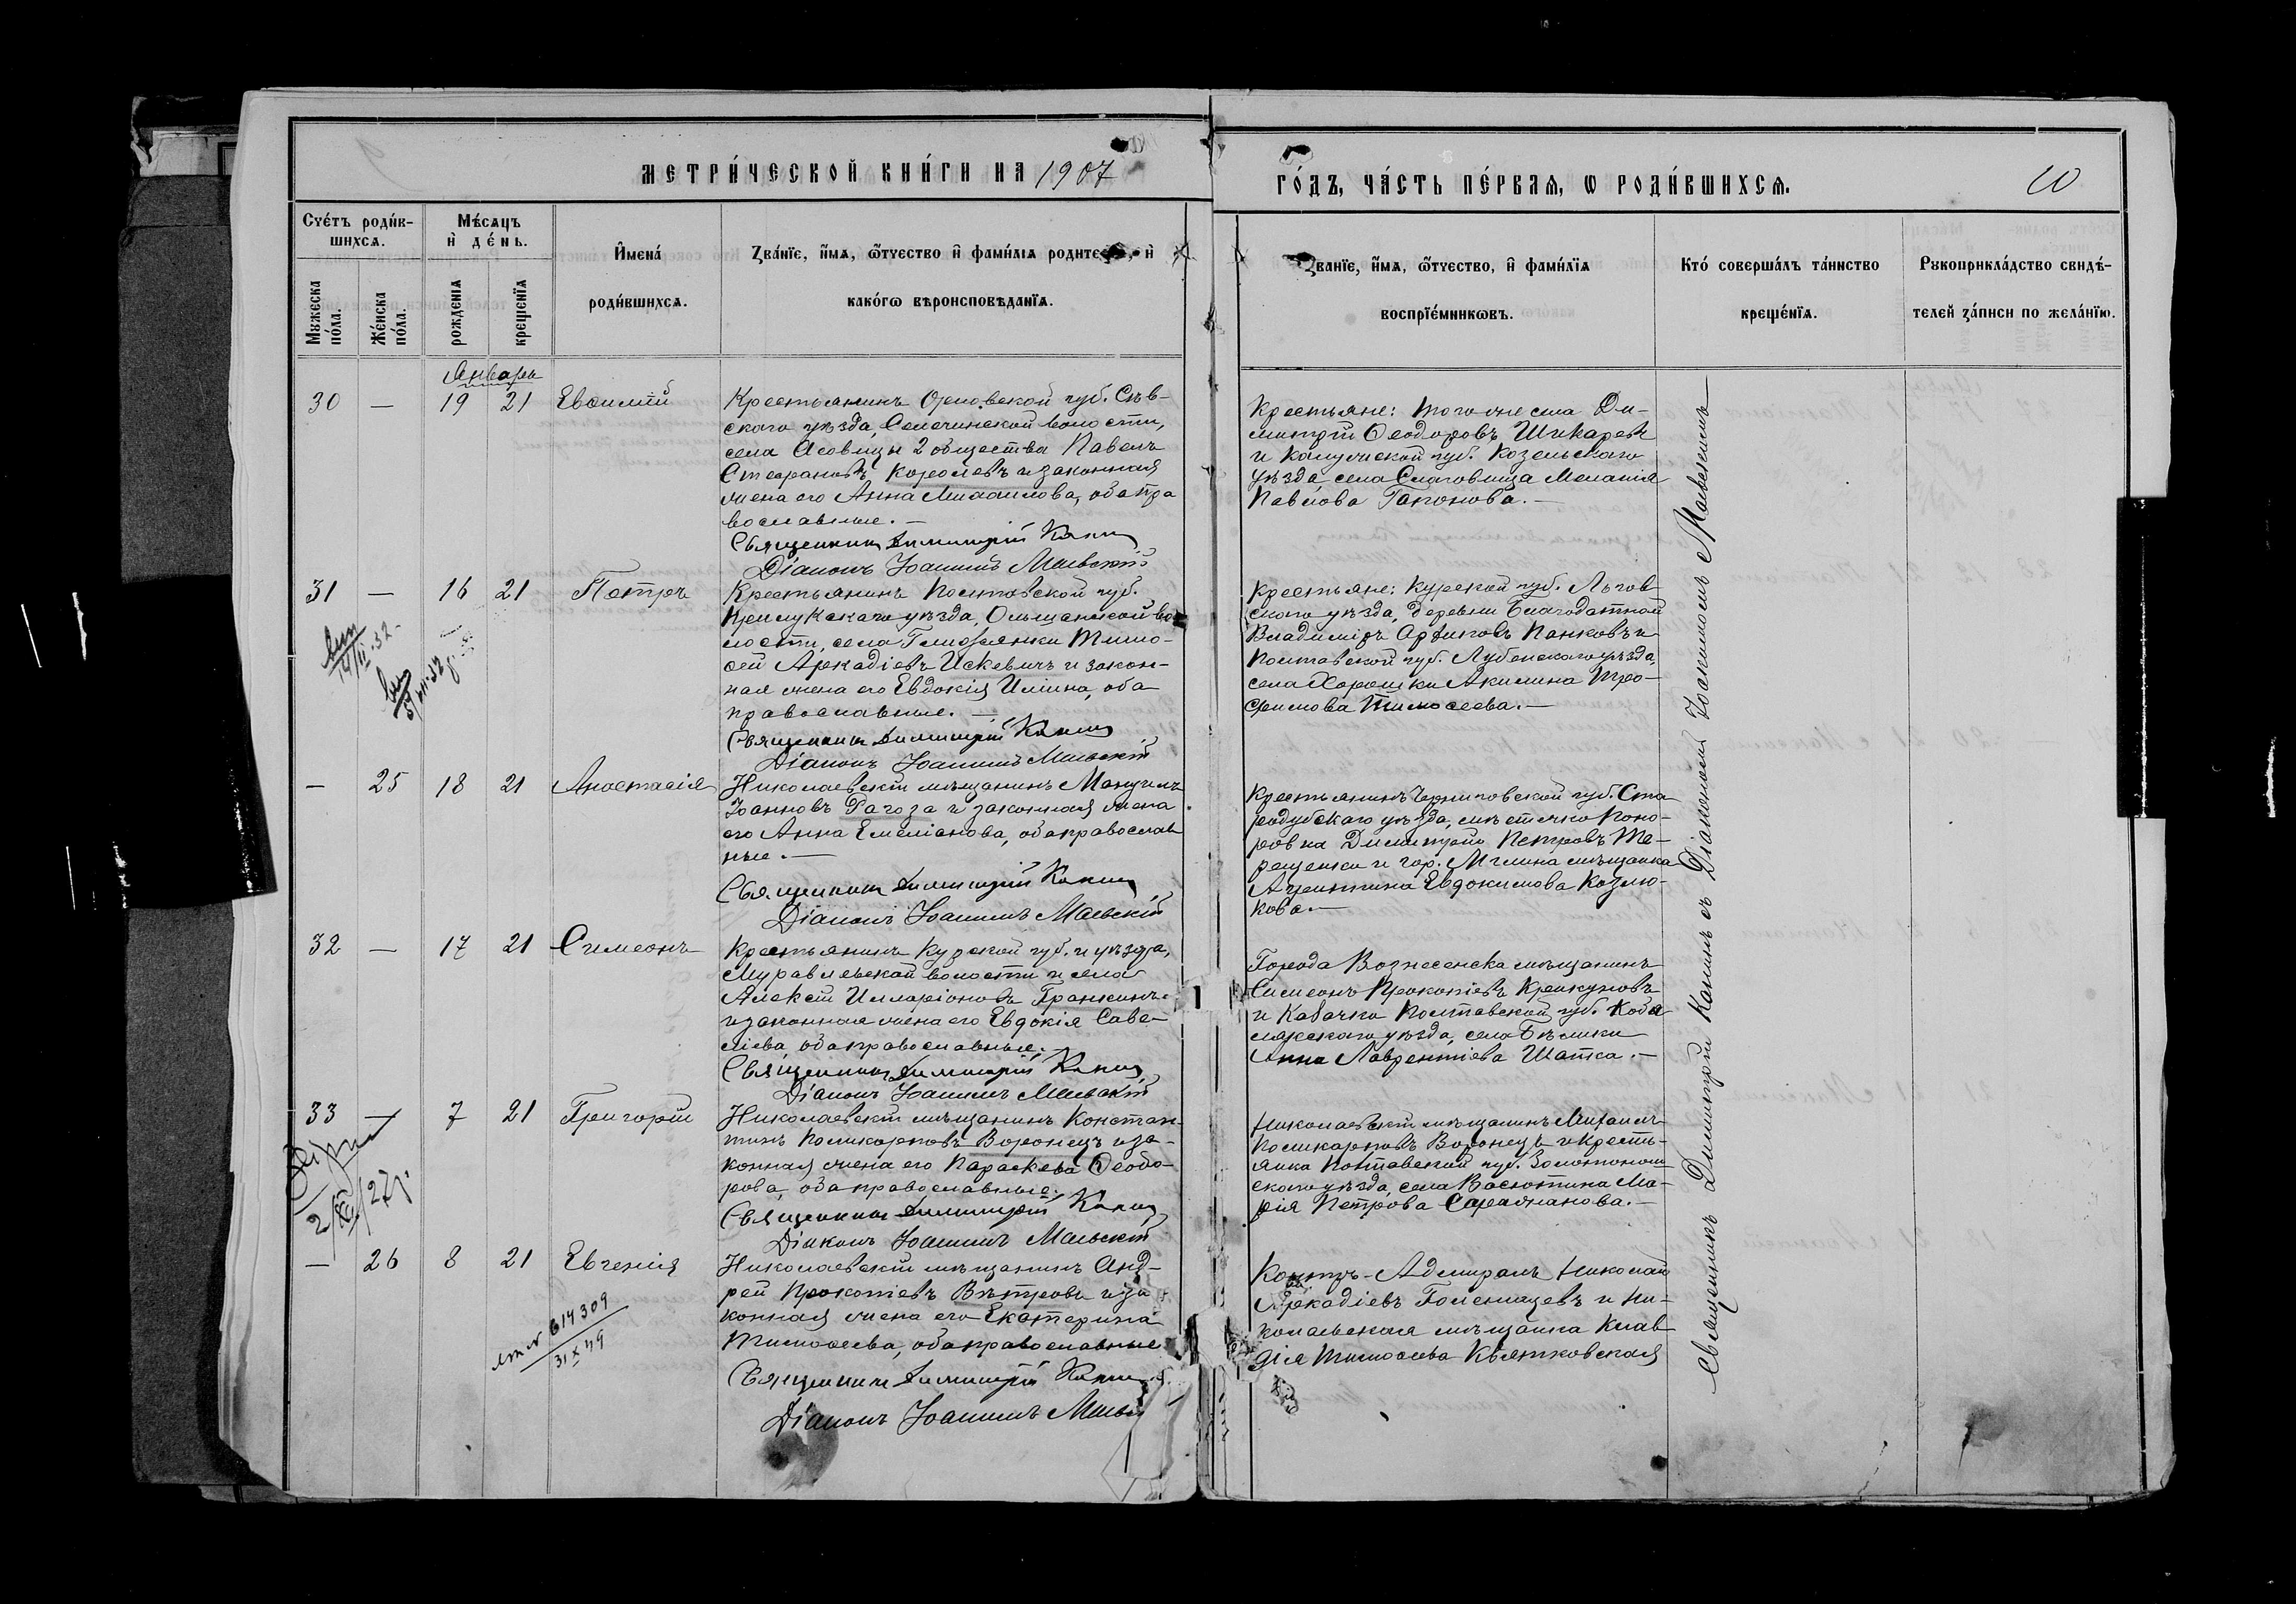 МЕТРИ́ЧЕСКОЙ КНИ́ГИ НА 1907
ГО́ДЪ, ЧА́СТЬ ПЕ́РВАЯ, Ѡ РОДИ́ВШИХСѦ.
10
Сче́тъ роди́вшихсѧ.
Мѣ́сѧцъ и҆ де́нь.
И҆мена́ роди́вшихсѧ.
Зва́нїе, и҆́мѧ, ѻ҆́тчество и҆ фами́лїѧ родите, и҆
како́гѡ вѣроисповѣ́данїѧ.
Зва́нїе, и҆́мѧ, ѻ҆́тчество, и҆ фами́лїѧ
воспрїе́мникѡвъ.
Кто́ соверша́лъ та́инство
креще́нїѧ.
Рꙋкоприкла́дство свидѣ́-
телей за́писи по жела́нїю.
Мꙋжеска по́ла.
Же́нска по́ла.
рожденїѧ
крещенїѧ
Январь
30 — 19 21 Евѳимій
Крестьянинъ Орловской губ. Сѣв-
скаго уѣзда, Селечинской волости,
села Асовицы 2 общества Павелъ
Стефановъ Королевъ и законная
жена его Анна Михаилова, оба пра
вославные. —
Священникъ Димитрій
Діаконъ Іоаннъ Маевскій
Крестьяне: того же села Ди-
митрій Ѳеодоровъ Шикаревъ
и Калужской губ. Козельскаго
уѣзда, села Меланія
Павлова Гапонова. —
31 — 16 21 Петръ
Крестьянинъ Полтавской губ.
Прилукскаго уѣзда, Ольшанской во
лости, села Тимо-
ѳей Аркадіевъ Искевичъ и закон-
ная жена его Евдокія Иліина, оба
православные. —
Священникъ Димитрій
Діаконъ Іоаннъ Маевскій
Крестьяне: Курской губ. Льгов-
скаго уѣзда, деревни Благодатной
Владиміръ Панковъ и
Полтавской губ. Лубенскаго уѣзда,
села Хорошки Акилина Тро-
фимова Тимоѳеева. —
— 25 18 21 Анастасія
Николаевскій мѣщанинъ Мануилъ
Іоанновъ Рагоза и законная жена
его Анна Емеліанова, оба православ
ные. —
Священникъ Димитрій
Діаконъ Іоаннъ Маевскій
Крестьянинъ Черниговской губ. Ста
родубскаго уѣзда, мѣстечко Поно-
ровка Димитрій Петровъ Те-
рещенко и гор. Мглина мѣщанка
Евдокимова Козлю-
кова. —
32 — 17 21 Симеонъ
Крестьянинъ Курской губ. и уѣзда,
Муравлевской волости и села
Алексій Илларіоновъ Гранкинъ
и законная жена его Евдокія Саве-
ліева, оба православные. —
Священникъ Димитрій
Діаконъ Іоаннъ Маевскій
Города Вознесенска мѣщанинъ
Симеонъ Прокопіевъ
и Козачка Полтавской губ. Кобе
лякскаго уѣзда, села Бѣлики
Анна Лаврентіева Шапка. —
33 — 7 21 Григорій
Николаевскій мѣщанинъ Констан-
тинъ Поликарповъ Воронецъ и за-
конная жена его Параскева Ѳеодо-
рова, оба православные.
Священникъ Димитрій
Діаконъ Іоаннъ Маевскій
Николаевскій мѣщанинъ Михаилъ
Поликарповъ Воронецъ и кресть-
янка Полтавской губ. Золотонош
скаго уѣзда, села Васютина Ма-
рія Петрова Саражанова. —
— 26 8 21 Евгенія
Николаевскій мѣщанинъ Анд-
рей Прокопіевъ Вѣтровъ и за
конная жена его Екатерина
Тимоѳеева, оба православные
Священникъ Димитрій
Діаконъ Іоаннъ
Контръ-Адмиралъ Николай
Аркадіевъ и Ни-
колаевская мѣщанка Клав
дія Тимоѳеева Квятковская
614309
31 X 49
Священникъ Димитрій съ Діакономъ Маевскимъ